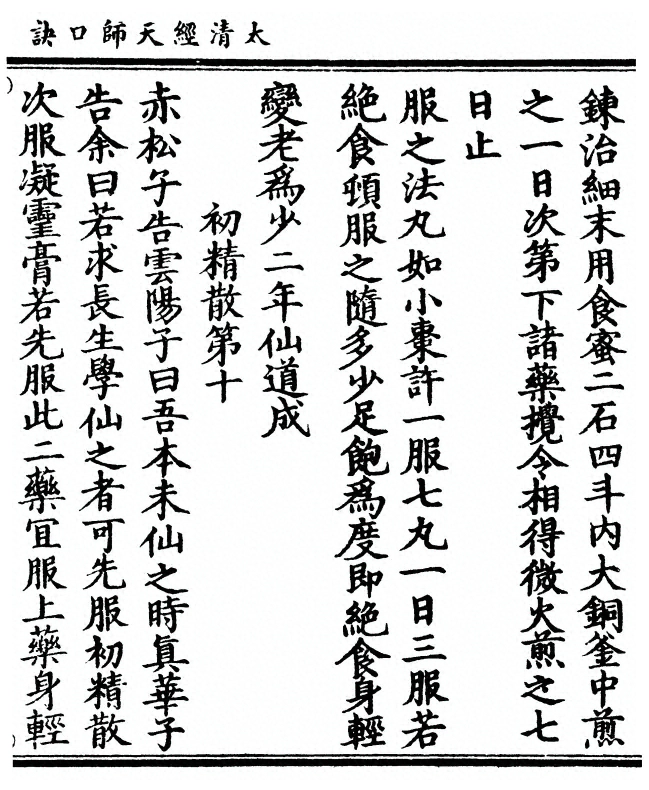 太清經天師口訣
鍊治細末用食蜜二石四斗內大銅釜中煎
之一日次第下諸藥攪令相得微火煎之七
日止
服之法丸如小棗許一服七丸一日三服若
絕食頓服之隨多少足飽為度即絕食身輕
變老為少二年仙道成
初精散第十
赤松子告雲陽子曰吾本未仙之時真華子
告余曰若求長生學仙之者可先服初精散
次服凝靈膏若先服此二藥宜服上藥身輕